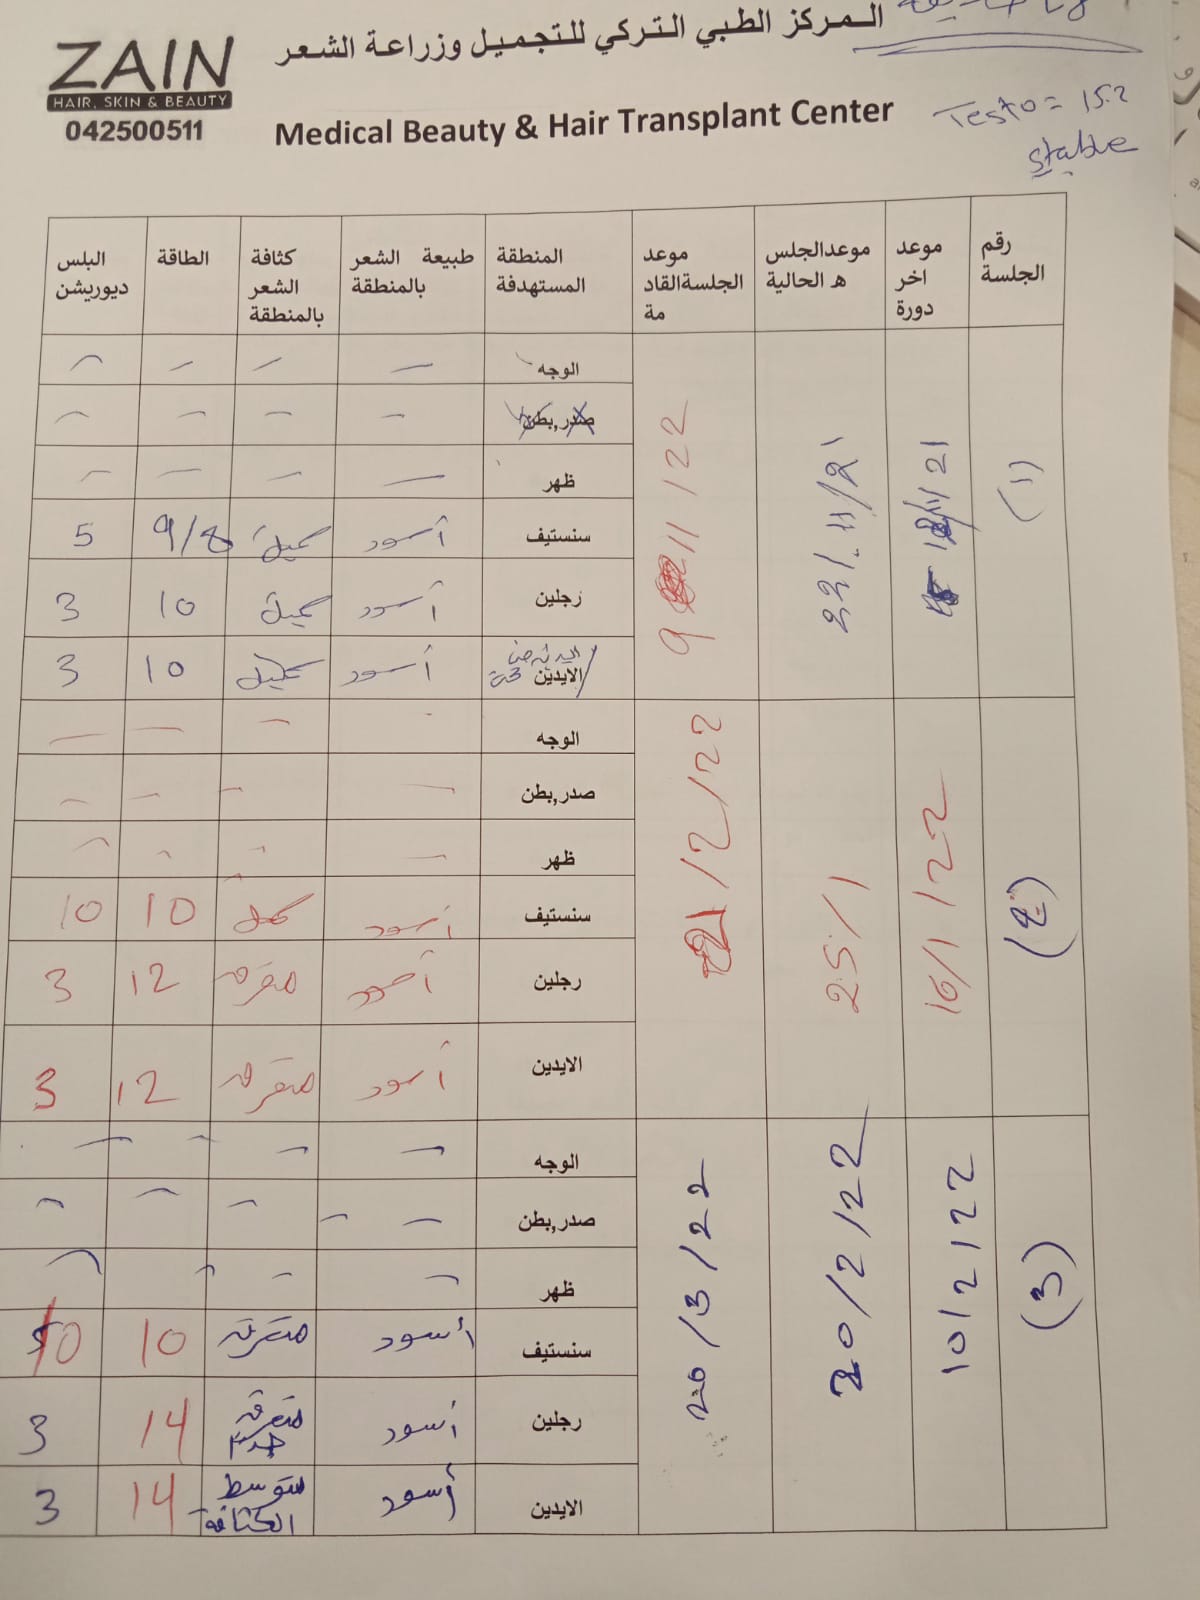 المركز الطبي التركي للتجميل وزراعة الشعر
ZAIN
HAIR, SKIN & BEAUTY
042500511
Medical Beauty & Hair Transplant Center
Testo = 15.2
stable
رقم الجلسة موعد اخر دورة موعدالجلس ه الحالية موعد الجلسةالقاد مة المنطقة المستهدفة طبيعة الشعر بالمنطقة كثافة الشعر بالمنطقة الطاقة البلس ديوريشن
(1)
الوجه – – – –
صدر,بطن – – – –
ظهر – – – –
سنستيف أسود 9/8 5
رجلين أسود 10 3
الايدين أسود 10 3
(2) 16/1/22 25/1
الوجه – – –
صدر,بطن – – – –
ظهر – – – –
سنستيف أسود 10 10
رجلين أسود متفرقة 12 3
الايدين أسود متفرقة 12 3
(3) 10/2/22 20/2/22 20/3/22
الوجه – – – –
صدر,بطن – – – – –
ظهر – – – –
سنستيف أسود متفرقة 10
رجلين أسود متفرقة جدا 14 3
الايدين أسود متوسط الكثافة 14 3